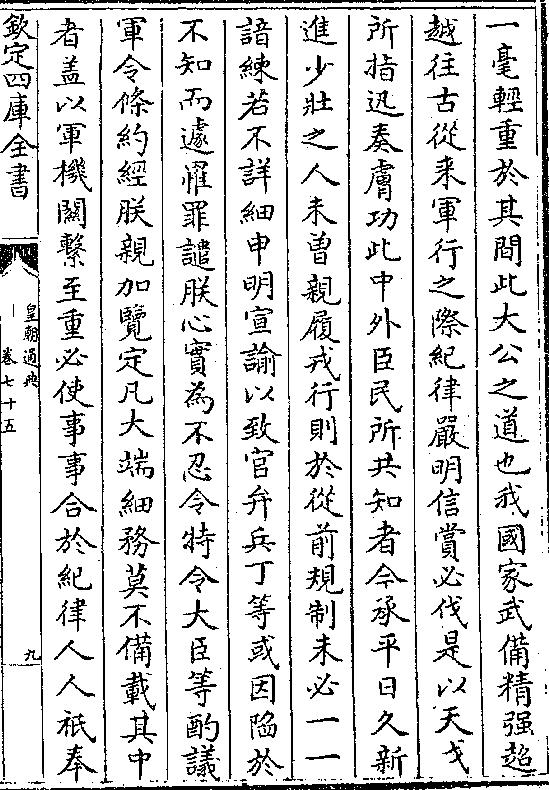 一毫輕重於其間此大公之道也我國家武備精强超
越往古從來軍行之際紀律嚴明信賞必伐是以天戈
所指迅奏膚功此中外臣民所共知者今承平日久新
進少壯之人未曽親履戎行則於從前規制未必一一
諳練若不詳細申明宣諭以致官弁兵丁等或因陷於
不知而遽罹罪譴朕心實為不忍令特令大臣等酌議
軍令條約經朕親加覽定凡大端細務莫不備載其中
者盖以軍機關繫至重必使事事合於紀律人人祇奉
欽定四庫全書
皇朝通典
卷七十五
九